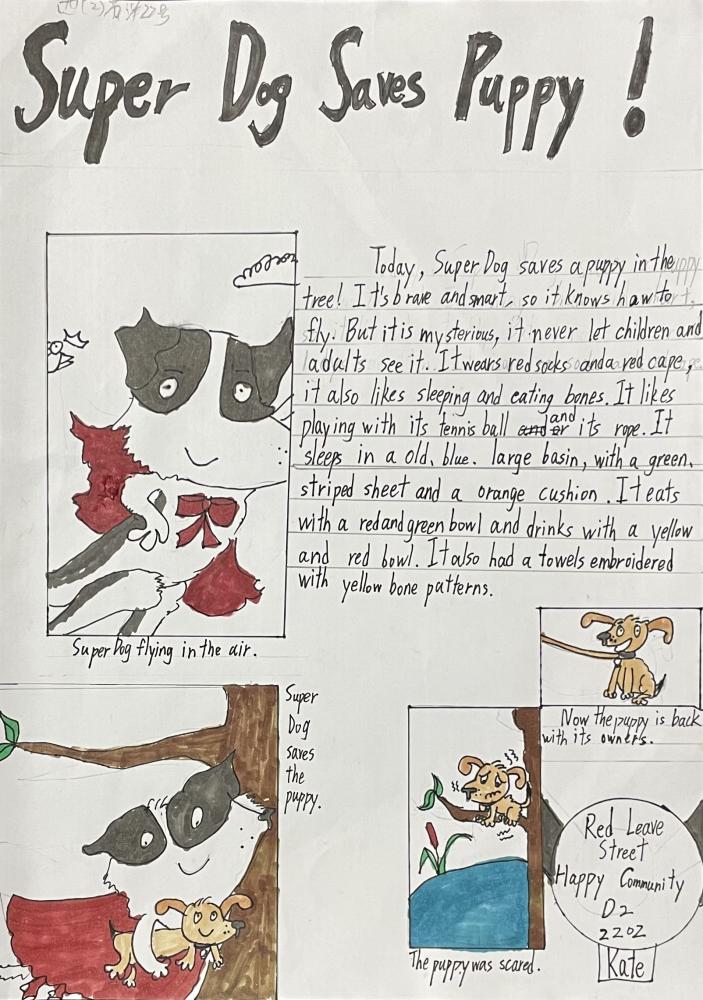 Super Dog Saves Puppy !
Today, Super Dog saves a puppy in the
tree! It's brave and smart, so it knows haw to
fly. But it is mysterious, it never let children and
adults see it. It wears red socks and a red cape,
it also likes sleeping and eating bones. It likes
playing with its tennis ball and or and its rope. It
sleeps in a old, blue. large basin, with a green,
striped sheet and a orange cushion. It eats
with a red and green bowl and drinks with a yellow
and red bowl. It also had a towels embroidered
with yellow bone patterns.
Super Dog flying in the air.
Super
Dog
saves
the
puppy.
Now the puppy is back
with its owners.
The puppy was scared.
Red Leave
Street
Happy Community
D2
2202
Kate